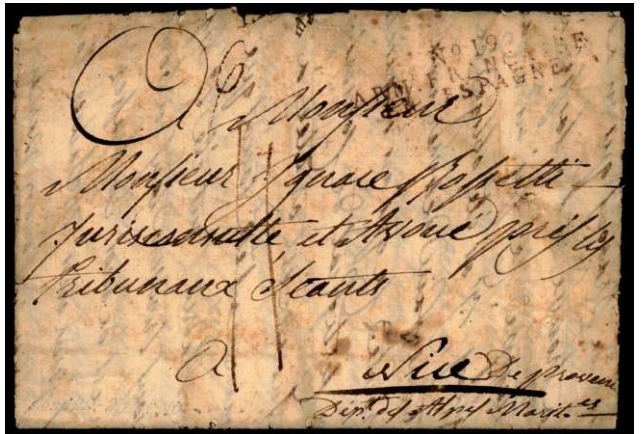 No 19
ARM. FRANÇAISE
ESPAGNE
A Monsieur
Monsieur Ignace Rossetti
Jurisconsulte et Avoué près les
tribunaux Séants
a Nice De provence
Dépt. des Alpes Marit.es